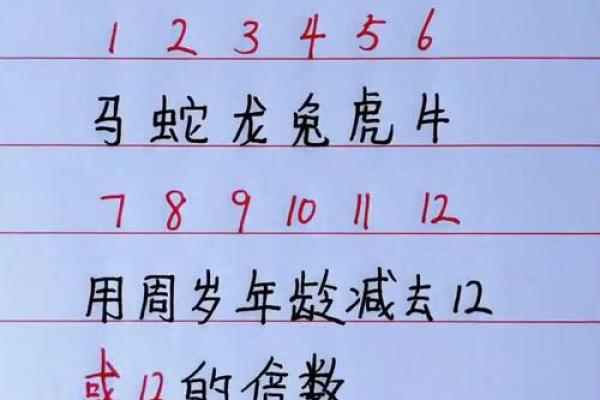 1 2 3 4 5 6
马蛇龙兔虎牛
7 8 9 10 11 12
用周岁年龄减去12
或12的倍数